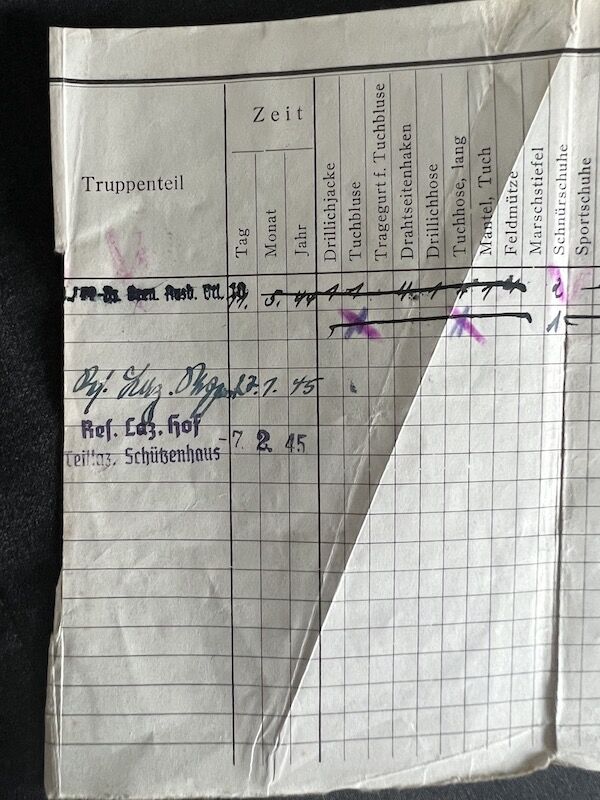 Truppenteil
Zeit
Tag
Monat
Jahr
Drillichjacke
Tuchbluse
Tragegurt f. Tuchbluse
Drahtseitenhaken
Drillichhose
Tuchhose, lang
Mantel, Tuch
Feldmütze
Marschstiefel
Schnürschuhe
Sportschuhe
5. 44 1 1 4 1 1 1 1 2
1
Laz. 1. 45
Ref. Laz. Hof
Teillaz. Schützenhaus -7. 2. 45